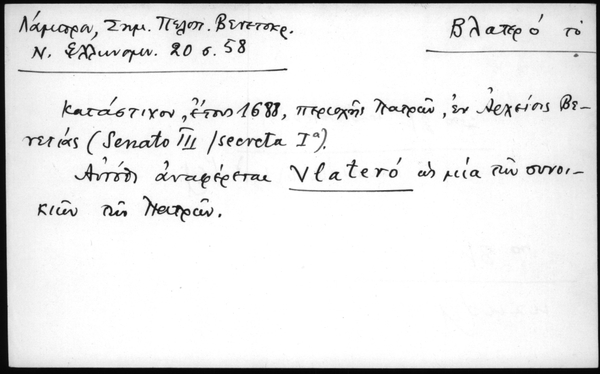 Λάμπρου, Σημ. Πελοπ. Βενετοκρ.
Ν. Ελληνομν. 20 σ. 58
Βλατερό τὸ
κατάστιχον, ἔτους 1688, περιοχῆς Πατρῶν, ἐν Ἀρχείοις Βε-
νετίας (Senato III /secreta Iª).
Αὐτόθι ἀναφέρεται Vlateró ὡς μία τῶν συνοι-
κιῶν τῶν Πατρῶν.